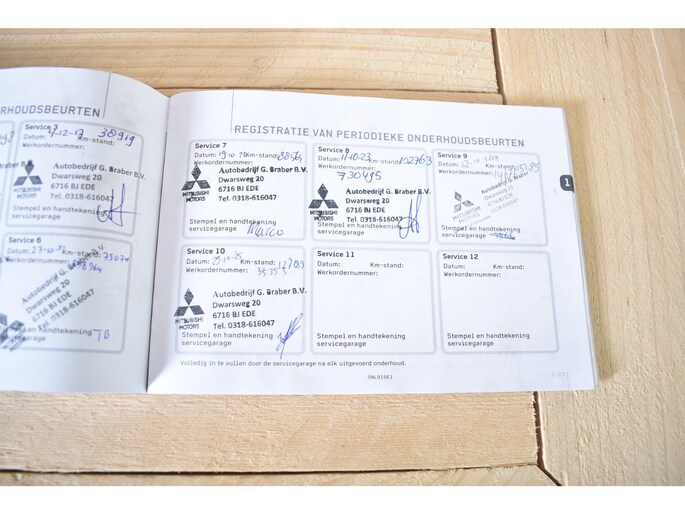 RHOUDSBEURTEN
Service 3
12-17 38919
Km-stand:
Werkordernummer:
Autobedrijf G. Braber B.V.
Dwarsweg 20
6716 BJ EDE
Tel. 0318-616047
MITSUBISHI
MOTORS
Stempel en handtekening
servicegarage
Service 6
Datum: Km-stand: 75074
Werkordernummer:
Autobedrijf G. Braber B.V.
Dwarsweg 20
6716 BJ EDE
Tel. 0318-616047
Stempel en handtekening
servicegarage
TB
REGISTRATIE VAN PERIODIEKE ONDERHOUDSBEURTEN
Service 7
Datum: Km-stand:
Werkordernummer:
Autobedrijf G. Braber B.V.
Dwarsweg 20
6716 BJ EDE
Tel. 0318-616047
MITSUBISHI
MOTORS
Stempel en handtekening
servicegarage
Marco
Service 8
Datum: 11-10-23 Km-stand: 102763
Werkordernummer:
730495
Autobedrijf G. Braber B.V.
Dwarsweg 20
6716 BJ EDE
Tel. 0318-616047
MITSUBISHI
MOTORS
Stempel en handtekening
servicegarage
Service 9
Datum: Km-stand:
Werkordernummer:
Autobedrijf G. Braber B.V.
Dwarsweg 20
6716 BJ EDE
Tel. 0318-616047
MITSUBISHI
MOTORS
Stempel en handtekening
servicegarage
1
Service 10
Datum: Km-stand:
Werkordernummer:
Autobedrijf G. Braber B.V.
Dwarsweg 20
6716 BJ EDE
Tel. 0318-616047
MITSUBISHI
MOTORS
Stempel en handtekening
servicegarage
Service 11
Datum: Km-stand:
Werkordernummer:
Stempel en handtekening
servicegarage
Service 12
Datum: Km-stand:
Werkordernummer:
Stempel en handtekening
servicegarage
Volledig in te vullen door de servicegarage na elk uitgevoerd onderhoud.